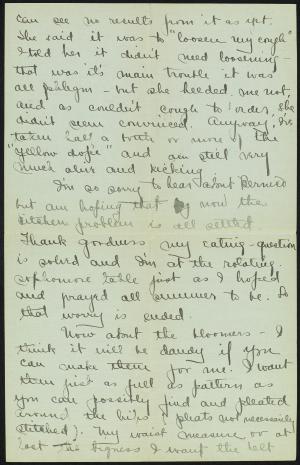 can see no results from it as yet.
She said it was to "loosen my cough"
I told her it didn't need loosening -
that was it's main trouble it was
all phlegm - but she heeded me not,
and as couldn't cough to order, she
didn't seem convinced. Anyway, I've
taken half a bottle or more of the
"yellow dope" and am still very
much alive and kicking.
I'm so sorry to hear about Bernice
but am hoping that by now the
kitchen problem is all settled.
Thank goodness my eating-question
is solved and I'm at the rotating
sophomore table just as I hoped
and prayed all summer to be. So
that worry is ended.
Now about the bloomers - I
think it will be dandy if you
can make them for me. I want
them just as full as pattern as
you can possibly find and pleated
around the hips (pleats not necessarily
stitched). My waist measure or at
least the bigness I want the belt